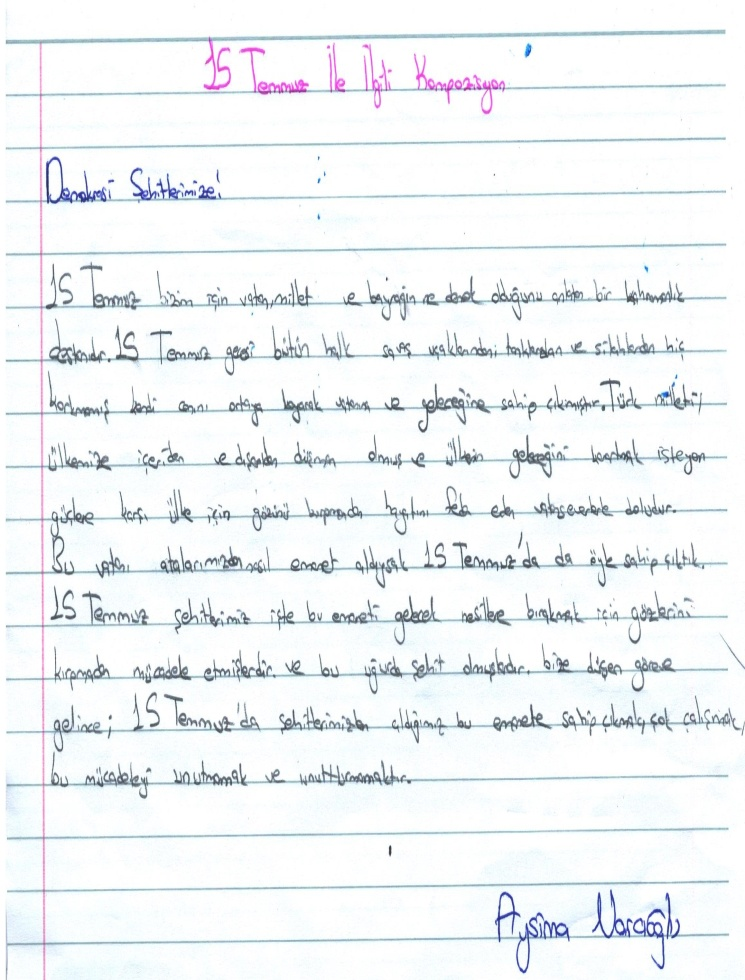 15 Temmuz İle İlgili Kompozisyon
Demokrasi Şehitlerimize!
15 Temmuz bizim için vatan, millet ve bayrağın ne demek olduğunu anlatan bir kahramanlık
destanıdır. 15 Temmuz gecesi bütün halk savaş uçaklarından, tanklardan ve silahlardan hiç
korkmamış kendi canını ortaya koyarak vatanına ve geleceğine sahip çıkmıştır. Türk milleti;
ülkemize içeriden ve dışarıdan düşman olmuş ve ülkenin geleceğini karartmak isteyen
güçlere karşı ülke için gözünü kırpmadan hayatını feda eden vatanseverlerle doludur.
Bu vatanı atalarımızdan nasıl emanet aldıysak 15 Temmuz'da da öyle sahip çıktık.
15 Temmuz şehitlerimiz işte bu emaneti gelecek nesillere bırakmak için gözlerini
kırpmadan mücadele etmişlerdir. ve bu uğurda şehit olmuşlardır. bize düşen göreve
gelince; 15 Temmuz'da şehitlerimizden aldığımız bu emanete sahip çıkmak, çok çalışmak,
bu mücadeleyi unutmamak ve unutturmamaktır.
Aysima